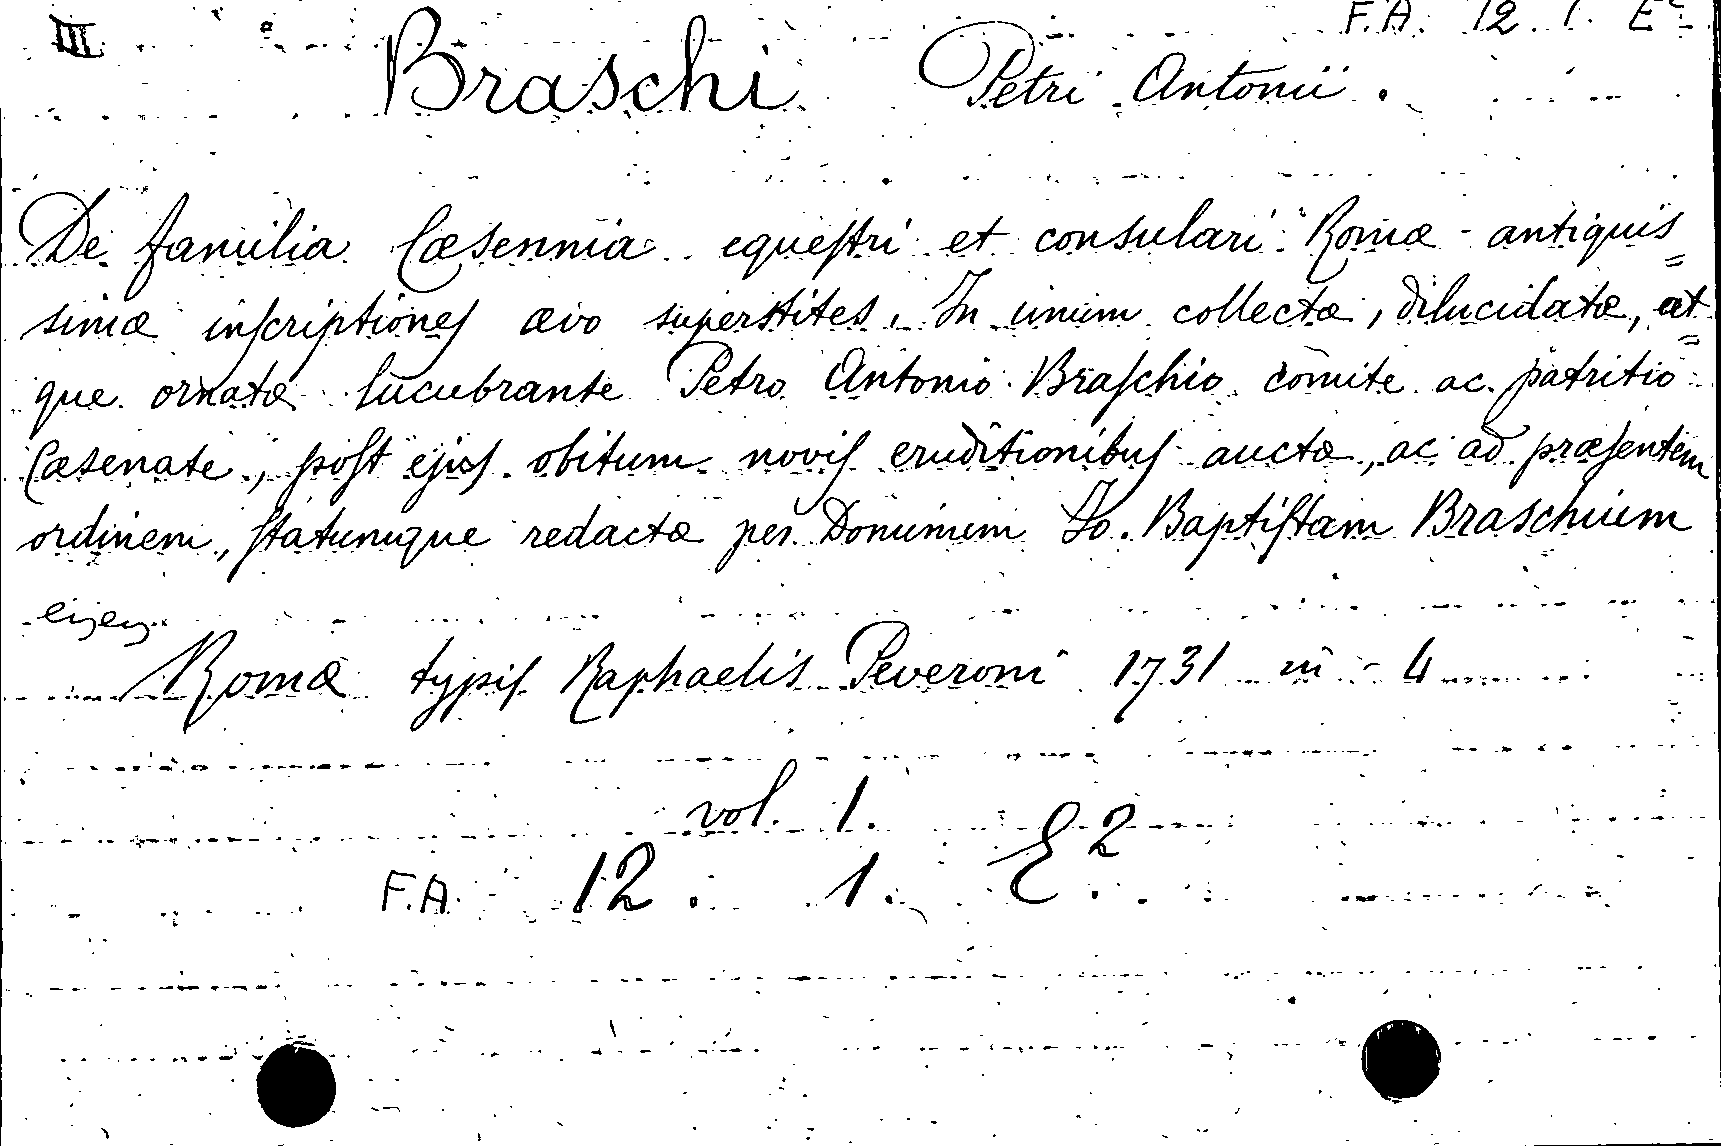 III F.A. 12. 1. E2
Braschi Petri Antonii.
De familia Cæsennia equeſtri et consulari Romæ antiquis=
simæ inſcriptioneſ ævo superstites. In unum collectæ, dilucidatæ, at=
que ornatæ lucubrante Petro Antonio Braſchio comite ac patritio
Cæsenate, poſt ejuſ obitum noviſ eruditionibuſ auctæ, ac ad præſentem
ordinem, ſtatumque redactæ per Dominum Jo. Baptiſtam Braschium
Romæ typiſ Raphaelis Peveroni 1731 in-4
vol. 1.
F.A. 12. 1. E2.